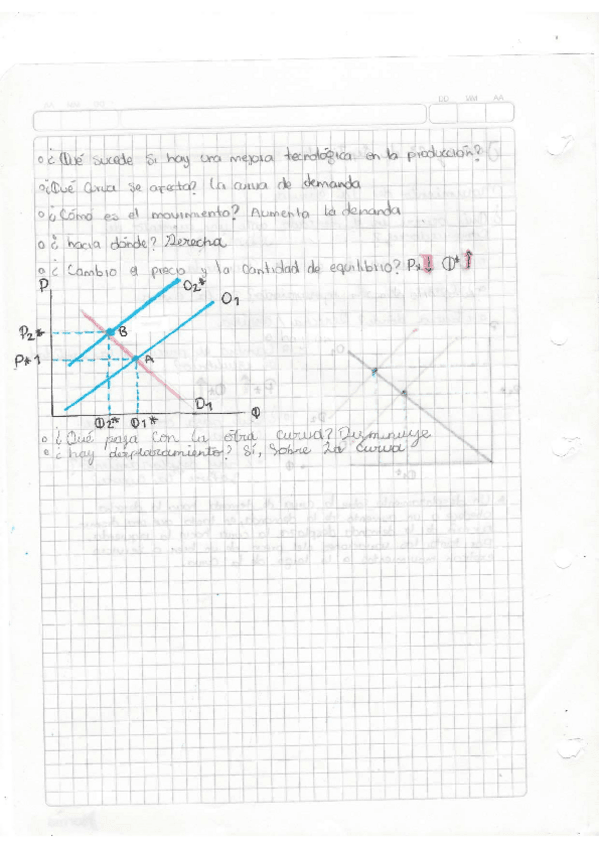 DD MM AA
o ¿Qué sucede si hay una mejora tecnológica en la producción?
o ¿Qué curva se afecta? La curva de demanda
o ¿Cómo es el movimiento? Aumenta la demanda
o ¿hacia dónde? Derecha
o ¿Cambio el precio y la cantidad de equilibrio? P* ↓ Q* ↑
P
O2*
O1
P2*
B
P*1
A
D1
Q2* Q1* Q
o ¿Qué pasa con la otra curva? Disminuye
o ¿hay displazamiento? Sí, sobre la curva